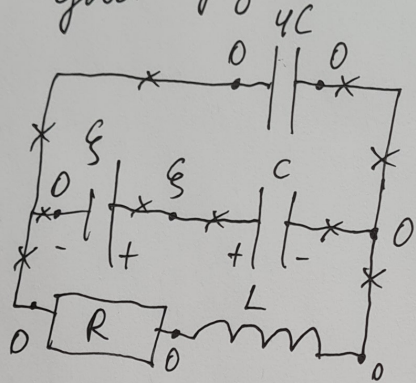 4C
0 0
ξ
0 ξ C
- + + - 0
L
0 R 0 0